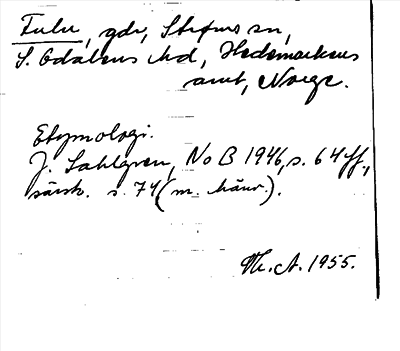 Fulu, gdr, Strøms sn,
S. Odalens hd, Hedemarkens
amt, Norge.
Etymologi.
J. Sahlgren, NoB 1946, s. 64 ff.,
särsk. s. 74 (m. hänv.).
Th. A. 1955.